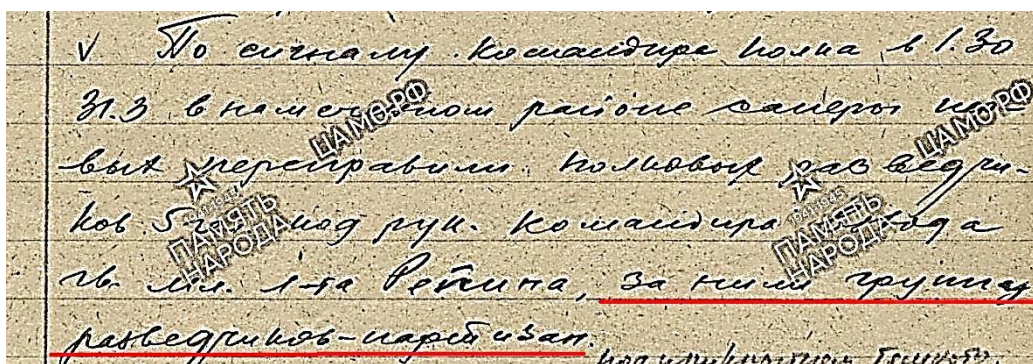 V По сигналу командира полка в 1.30
31.3 в намеченном районе саперы
вых переправили полковых разведчи-
ков 5 под рук. командира взвода
гв. мл. л-та Репина, за ними группа
разведчиков-партизан.
ЦАМО.РФ
ЦАМО.РФ
1941-1945
ПАМЯТЬ
НАРОДА
1941-1945
ПАМЯТЬ
НАРОДА